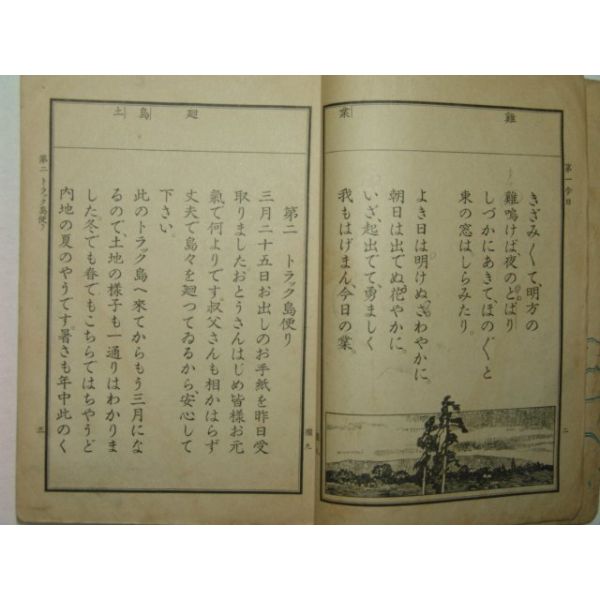 雞
業
第一 今日
きざみ〱て、明方の
雞鳴けば夜のとばり
しづかにあきて、ほの〲と
東の窓はしらみたり。
よき日は明けぬ、さわやかに。
朝日は出でぬ、花やかに。
いざ、起出でて、勇ましく
我もはげまん、今日の業。
二
廻
島
土
第二 トラック島便り
三月二十五日お出しのお手紙を昨日受
取りました。おとうさんはじめ皆様お元
氣で何よりです。叔父さんも相かはらず
丈夫で島々を廻つてゐるから、安心して
下さい。
此のトラック島へ來てからもう三月にな
るので、土地の樣子も一通りはわかりま
した。冬でも春でもこちらではちやうど
内地の夏のやうです。暑さも年中此のく
第二 トラック島便り
三